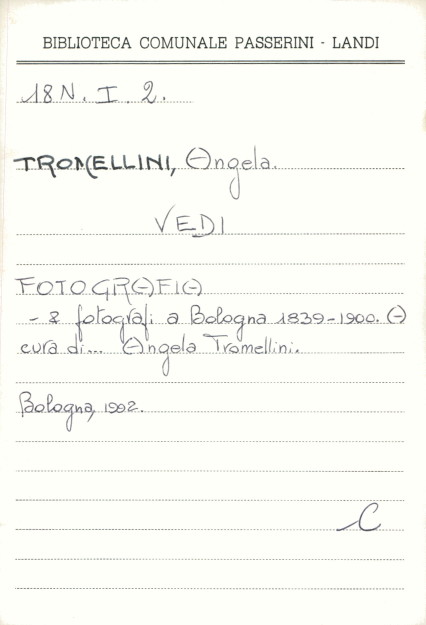 BIBLIOTECA COMUNALE PASSERINI - LANDI
18 N. I. 2.
TROMELLINI, Angela.
VEDI
FOTOGRAFIA
- & fotografi a Bologna 1839-1900. A
cura di... Angela Tromellini.
Bologna, 1992.
C